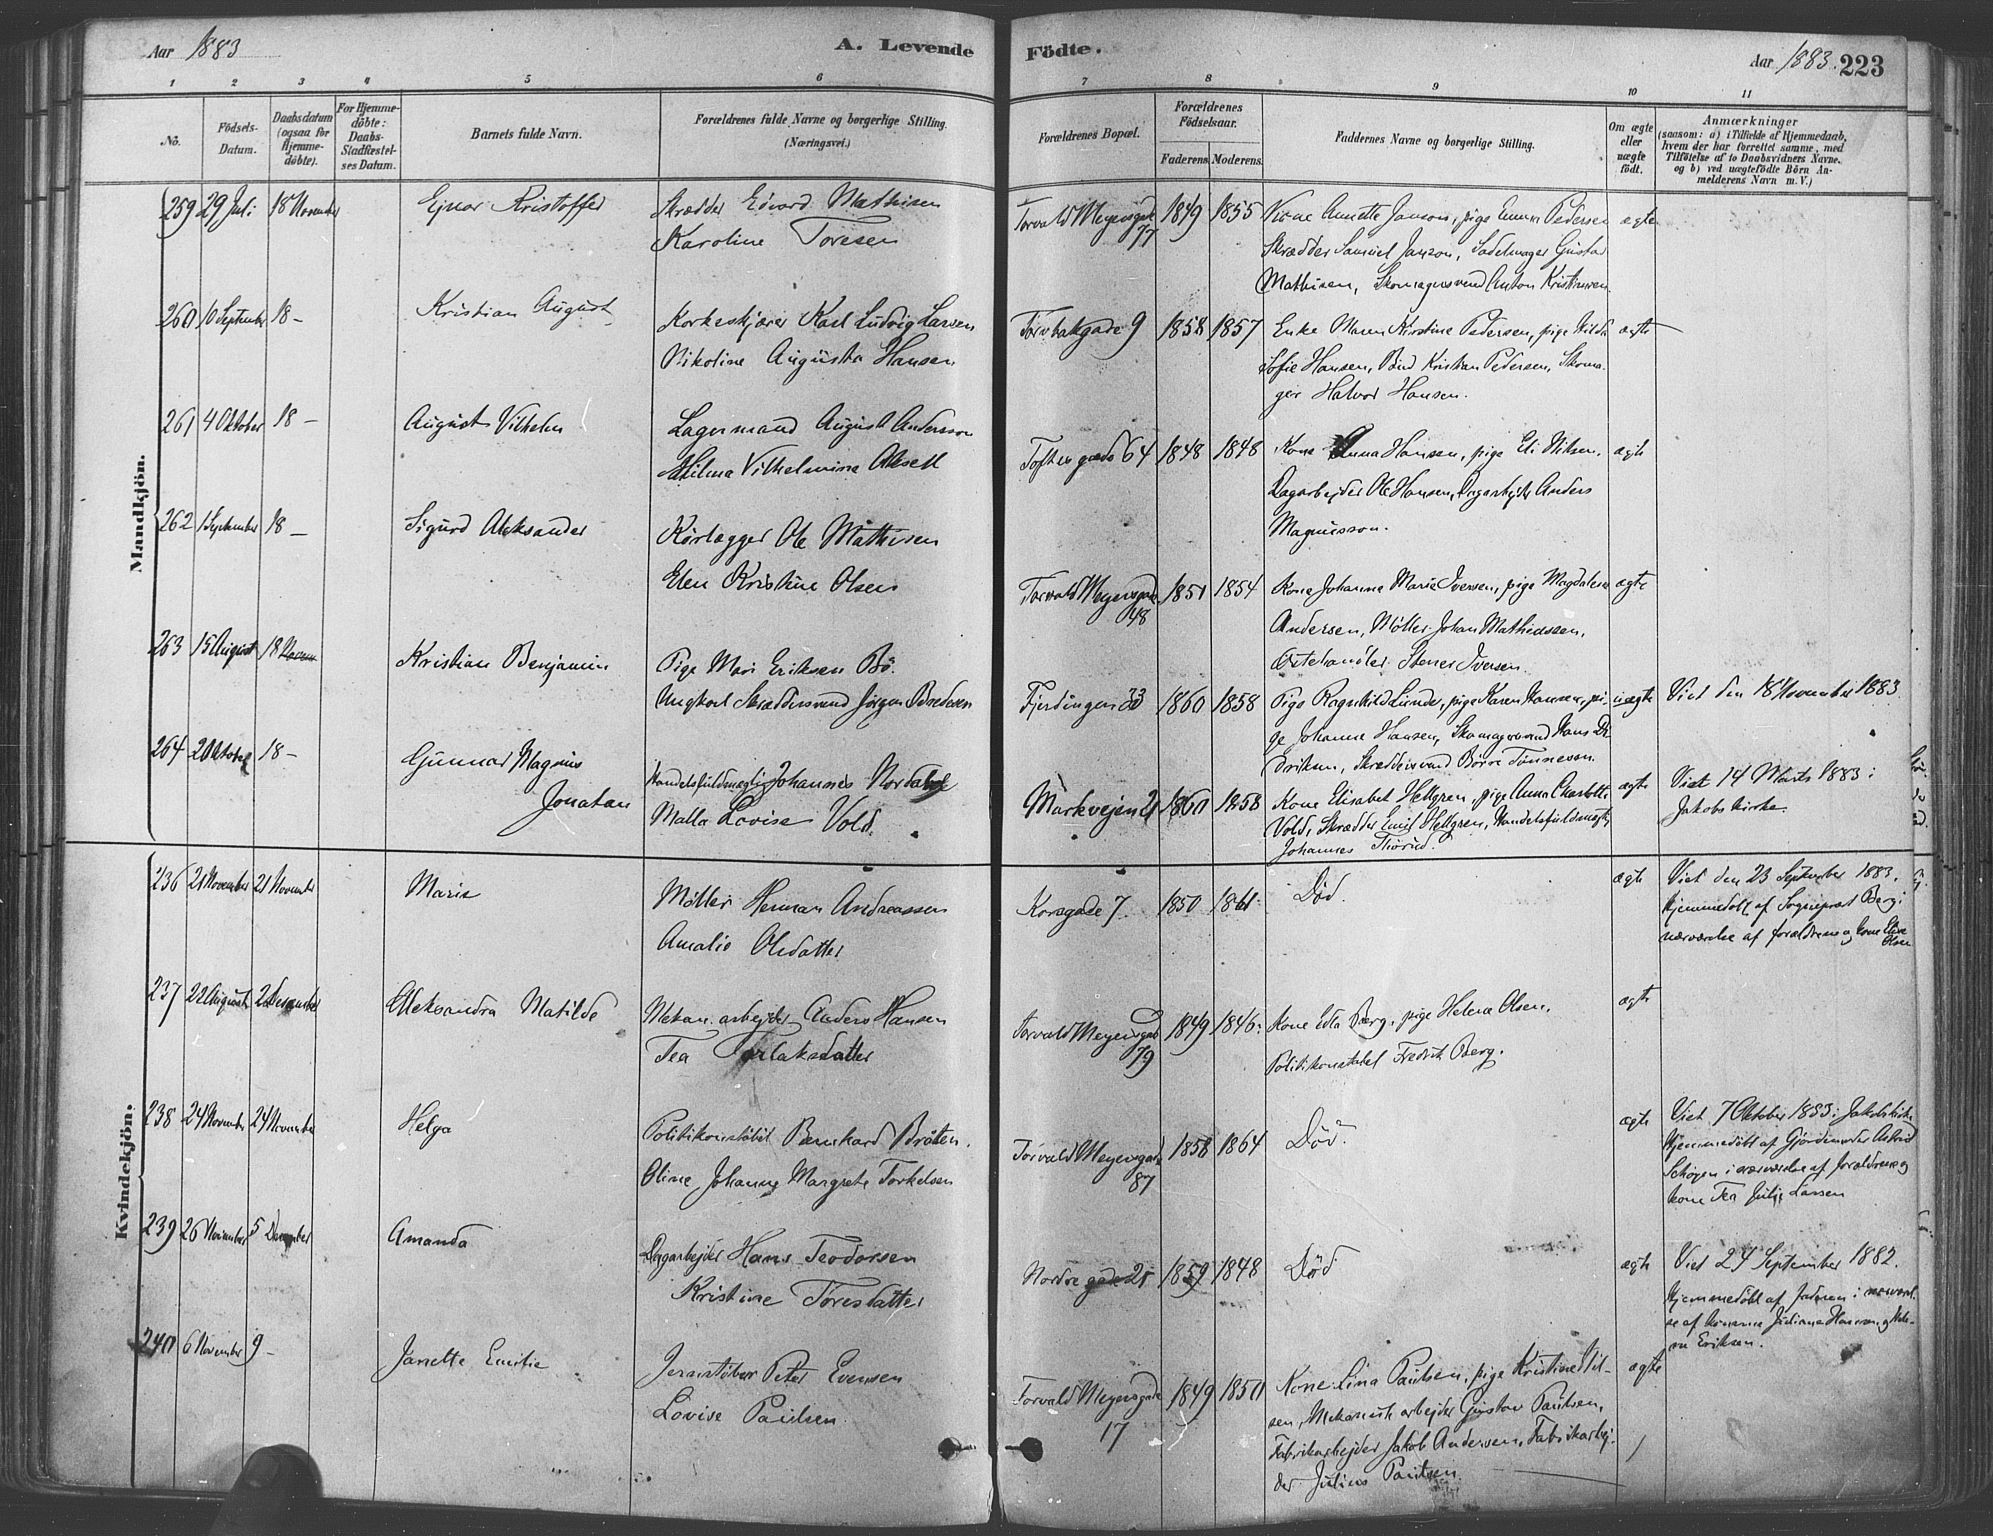 Aar 1883
A. Levende
Födte.
Aar 1883. 223
1 2 3 4 5 6 7 8 9 10 11
No.
Födsels-
Datum.
Daabsdatum
(ogsaa for
Hjemme-
döbte).
For Hjemme-
döbte:
Daabs-
Stadfæstel-
ses Datum.
Barnets fulde Navn.
Forældrenes fulde Navne og borgerlige Stilling.
(Næringsvei.)
Forældrenes Bopæl.
Forældrenes
Födselsaar.
Faderens. Moderens.
Faddernes Navne og borgerlige Stilling.
Om ægte
eller
uægte
födt.
Anmærkninger
(saasom: a) i Tilfælde af Hjemmedaab,
hvem der har forrettet samme, med
Tilföielse af to Daabsvidners Navne,
og b) ved uægtefödte Börn An-
melderens Navn m. V.)
Mandkjön.
259 29 Juli 18 November Ejnar Kristoffer
Skrædder Edvard Mathisen
Karoline Toresen
Torvald Meyersgade
77
1849 1855
Kone Annette Janson, pige Emma Pedersen
Skrædder Samuel Janson, Sadelmager Gustav
Mathisen, Skomagersvend Anton Kristiansen
ægte
260 10 September 18 – Kristian August
Korkeskjærer Karl Ludvig Larsen
Nikoline Augusta Hansen
Torvbakgade 9 1858 1857
Enke Maren Kirstine Pedersen, pige Hilda
Sofie Hansen, Kristian Pedersen, Skoma-
ger Halvor Hansen.
ægte
261 4 Oktober 18 – August Vilhelm
Lagermand August Andersson
Vilhelmine
Toftesgade 64 1848 1848
Kone Anna Hansen, pige Eli Nilsen,
Dagarbejder Ole Hansen, Dagarbejder Anders
Magnusson.
ægte
262 1 September 18 – Sigurd Aleksander
Rörlægger Ole Mathisen
Elen Kristine Olsen
Torvald Meyersgade
48
1851 1854
Kone Johanne Marie Iversen, pige Magdalene
Andersen, Møller Johan Mathiassen,
Ostehandler Stener Iversen.
ægte
263 15 August 18 Kristian Benjamin
Pige Mari Eriksen Bö.
Ungkarl Skræddersvend Jörgen Bredesen
Fjerdingen 33 1860 1858
Pige Ragnhild Lunde, pige Karen Hansen, pi-
ge Johanne Hansen, Skomagersvend Hans
Eriksen, Skræddersvend Börre Tönnesen
uægte
Viet den 18 November 1883.
264 2 Oktober 18 – Gunnar Magnus
Jonatan
Handelsfuldmægtig Johannes Nordahl
Malla Lovise Vold.
Markvejen 21 1860 1858
Kone Elisabet Hellgren, pige Anna Charlotte
Vold, Skrædder Emil Hellgren, Handelsfuldmægtig
Johannes
ægte
Viet 14 Marts 1883 i
Jakobs kirke.
Kvindekjön.
236 21 November 21 November Marie
Møller Herman Andreassen
Amalie Olsdatter
Korsgade 7 1850 1861
Död.
ægte
Viet den 23 September 1883.
Hjemmedöbt af Sogneprest Berg i
nærværelse af forældrene og kone Elise
Olsen
237 22 August 2 December Aleksandra Matilde
Mekan. arbejder Anders Hansen
Tea Torlaksdatter
Torvald Meyersgade
79
1849 1846.
Kone Edla Berg, pige Helena Olsen,
Politikonstabel Fredrik Berg.
ægte
238 24 November 24 November Helga
Politikonstabel Bernhard Bråten.
Oline Johanne Margrete Torkelsen
Torvald Meyersgade
87
1858 1864
Död.
ægte
Viet 7 Oktober 1883 i Jakobs kirke
Hjemmedöbt af Gjordemoder Astrid
i nærværelse af forældrene og
kone Tea Julie Larsen
239 26 November 5 December Amanda
Dagarbejder Hans Teodorsen
Kristine Toresdatter
Nordregade 21 1859 1848
Död
ægte
Viet 24 September 1882.
Hjemmedöbt af faderen i nærværel-
se af konerne Juliane Hansen og
Eriksen.
240 6 November 9 – Janette Emilie
Jernstöber Peter Evensen
Lovise Paulsen.
Torvald Meyersgade
17
1849 1850
Kone Lina Paulsen, pige Kristine Nil-
sen, Mekanisk arbejder Gustav Paulsen,
Fabrikarbejder Jakob Andersen, Fabrikarbej-
der Julius Paulsen.
ægte